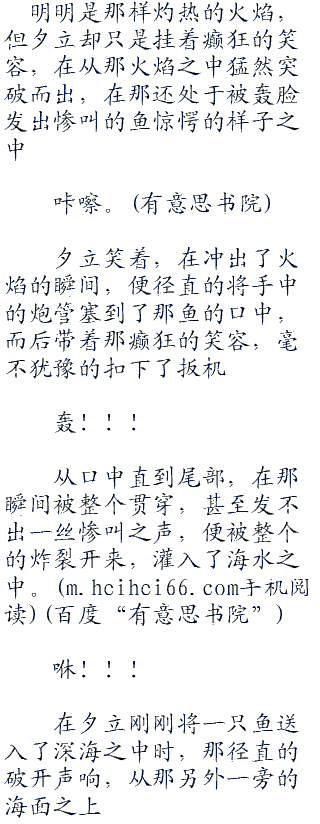 明明是那样灼热的火焰，
但夕立却只是挂着癫狂的笑
容，在从那火焰之中猛然突
破而出，在那还处于被轰脸
发出惨叫的鱼惊愕的样子之
中
咔嚓。(有意思书院)
夕立笑着，在冲出了火
焰的瞬间，便径直的将手中
的炮管塞到了那鱼的口中，
而后带着那癫狂的笑容，毫
不犹豫的扣下了扳机
轰！！！
从口中直到尾部，在那
瞬间被整个贯穿，甚至发不
出一丝惨叫之声，便被整个
的炸裂开来，灌入了海水之
中。(m.hcihci66.com手机阅
读)(百度“有意思书院”)
咻！！！
在夕立刚刚将一只鱼送
入了深海之中时，那径直的
破开声响，从那另外一旁的
海面之上